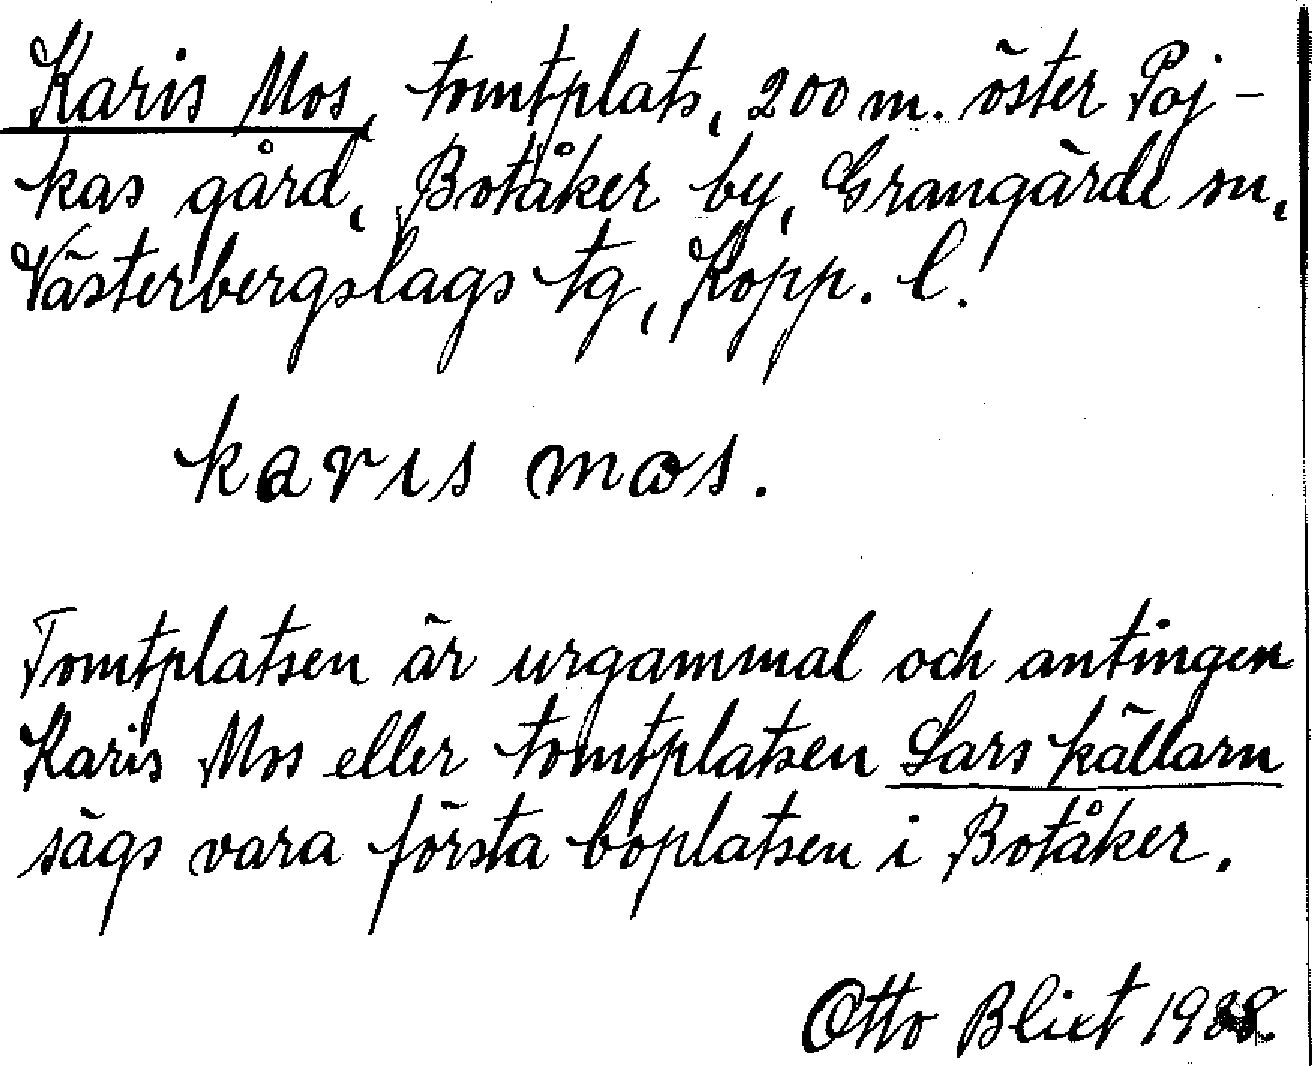 Karis Mos, tomtplats, 200 m. öster Poj-
kas gård, Botåker by, Grangärde sn,
Västerbergslags tg, Kopp. l.
karıs mɷs.
Tomtplatsen är urgammal och antingen
Karis Mos eller tomtplatsen Lars källarn
sägs vara första boplatsen i Botåker.
Otto Blixt 1938.